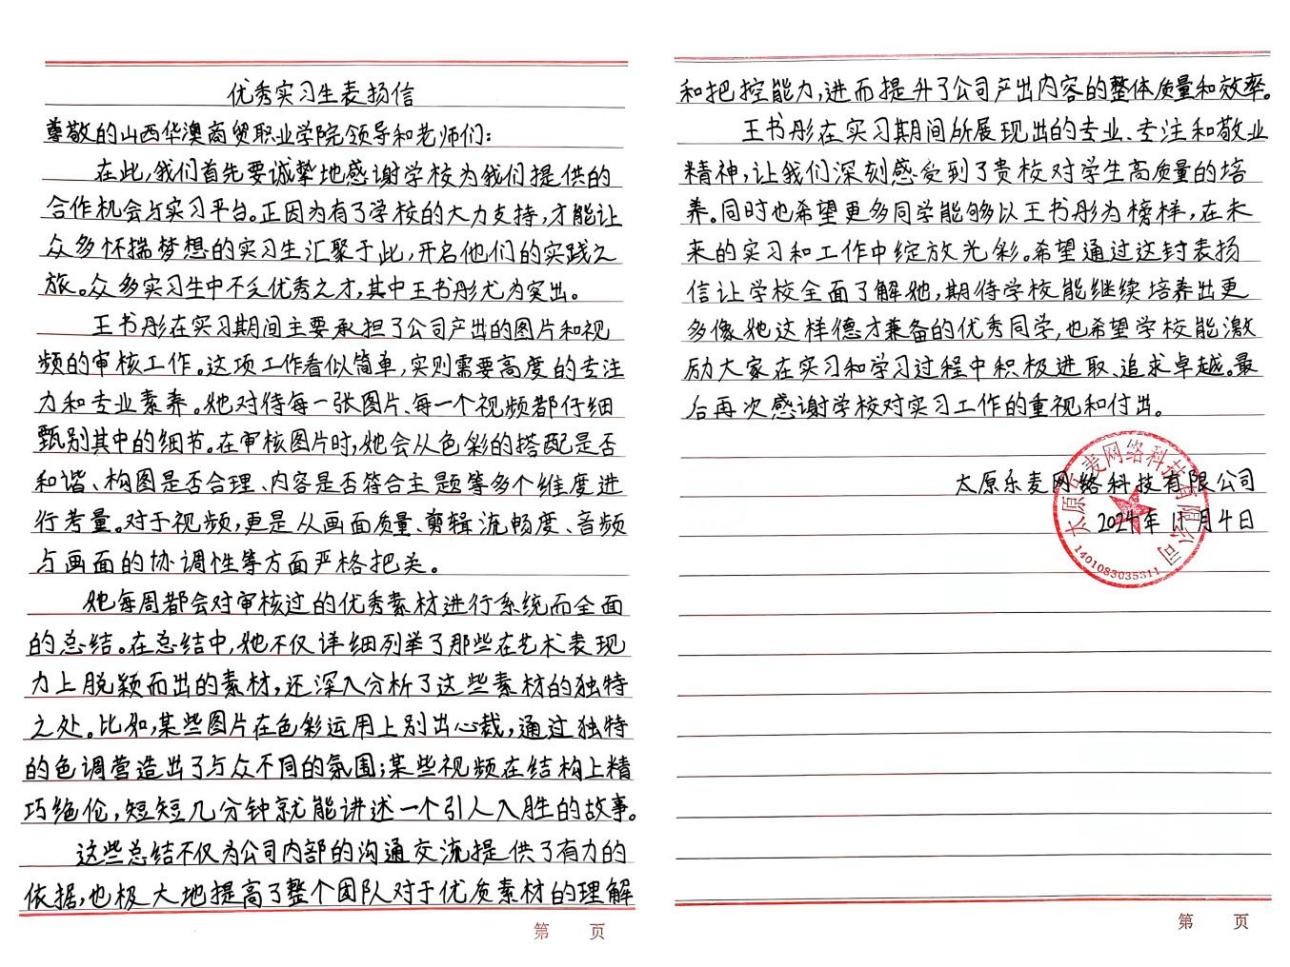 优秀实习生表扬信
尊敬的山西华澳商贸职业学院领导和老师们：
在此，我们首先要诚挚地感谢学校为我们提供的
合作机会与实习平台。正因为有了学校的大力支持，才能让
众多怀揣梦想的实习生汇聚于此，开启他们的实践之
旅。众多实习生中不乏优秀之才，其中王书彤尤为突出。
王书彤在实习期间主要承担了公司产出的图片和视
频的审核工作。这项工作看似简单，实则需要高度的专注
力和专业素养。她对待每一张图片、每一个视频都仔细
甄别其中的细节。在审核图片时，她会从色彩的搭配是否
和谐、构图是否合理、内容是否符合主题等多个维度进
行考量。对于视频，更是从画面质量、剪辑流畅度、音频
与画面的协调性等方面严格把关。
她每周都会对审核过的优秀素材进行系统而全面
的总结。在总结中，她不仅详细列举了那些在艺术表现
力上脱颖而出的素材，还深入分析了这些素材的独特
之处。比如，某些图片在色彩运用上别出心裁，通过独特
的色调营造出了与众不同的氛围；某些视频在结构上精
巧绝伦，短短几分钟就能讲述一个引人入胜的故事。
这些总结不仅为公司内部的沟通交流提供了有力的
依据，也极大地提高了整个团队对于优质素材的理解
第 页
和把控能力，进而提升了公司产出内容的整体质量和效率。
王书彤在实习期间所展现出的专业、专注和敬业
精神，让我们深刻感受到了贵校对学生高质量的培
养。同时也希望更多同学能够以王书彤为榜样，在未
来的实习和工作中绽放光彩。希望通过这封表扬
信让学校全面了解她，期待学校能继续培养出更
多像她这样德才兼备的优秀同学，也希望学校能激
励大家在实习和学习过程中积极进取、追求卓越。最
后再次感谢学校对实习工作的重视和付出。
太原乐麦网络科技有限公司
2024年11月4日
太原乐麦网络科技有限公司
1401083035311
第 页